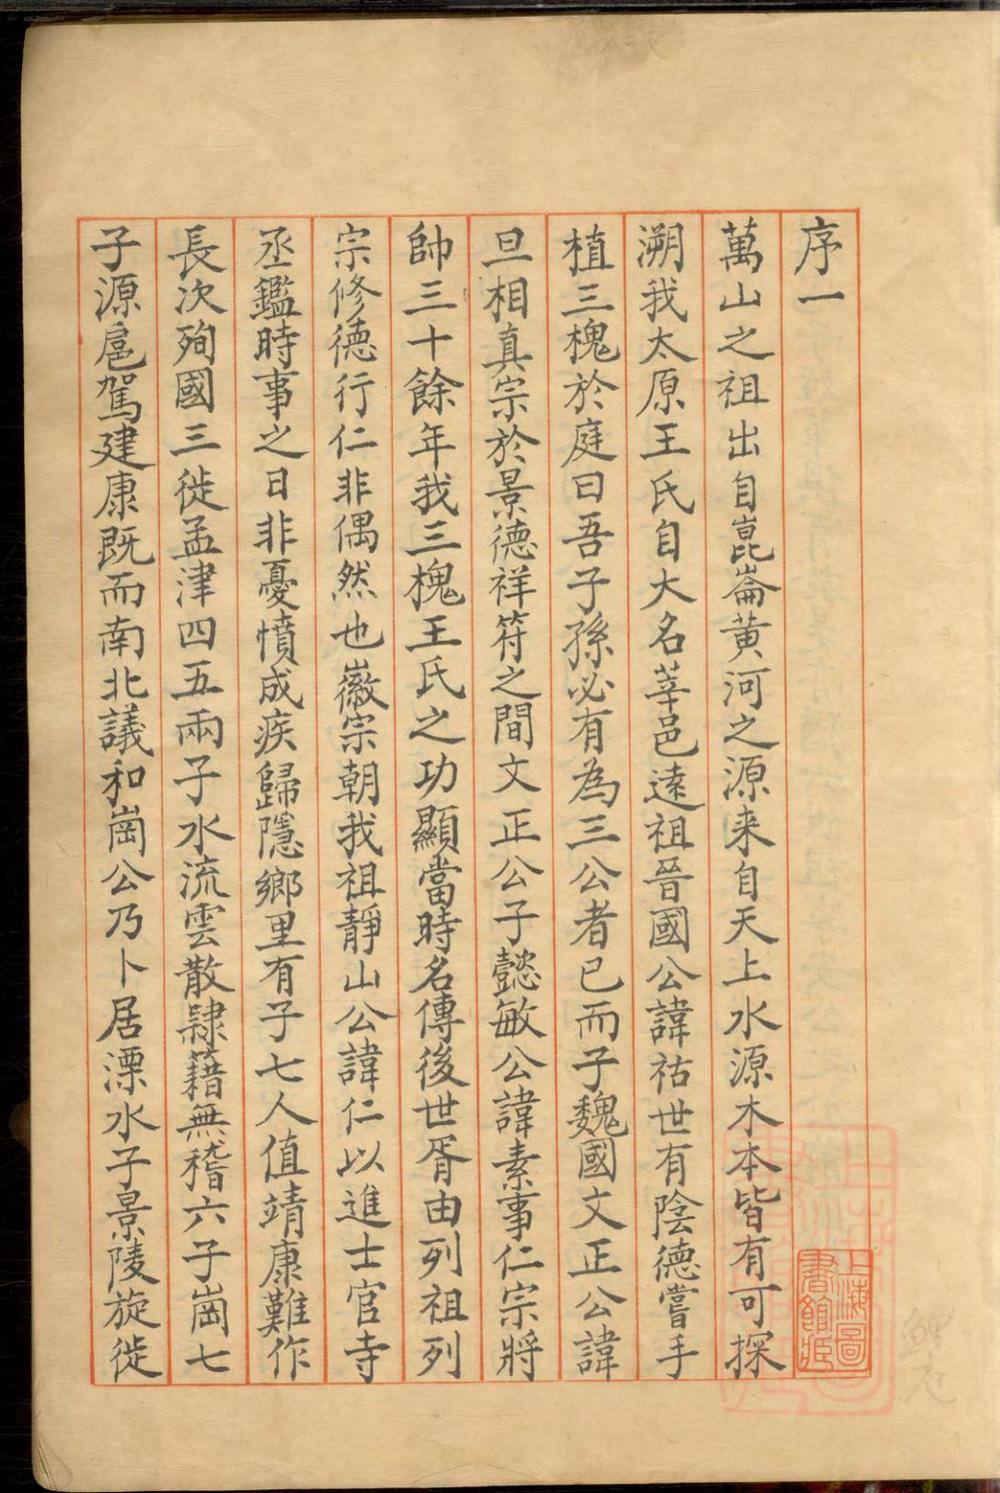 序一
萬山之祖出自崑崙黃河之源来自天上水源木本皆有可探
溯我太原王氏自大名莘邑遠祖晉國公諱祜世有陰德嘗手
植三槐於庭曰吾子孫必有為三公者已而子魏國文正公諱
旦相真宗於景德祥符之間文正公子懿敏公諱素事仁宗將
帥三十餘年我三槐王氏之功顯當時名傳後世胥由列祖列
宗修德行仁非偶然也徽宗朝我祖靜山公諱仁以進士官寺
丞鑑時事之日非憂憤成疾歸隱鄉里有子七人值靖康難作
長次殉國三徙孟津四五兩子水流雲散隸籍無稽六子崗七
子源扈駕建康既而南北議和崗公乃卜居溧水子景陵旋徙
上海圖書館藏